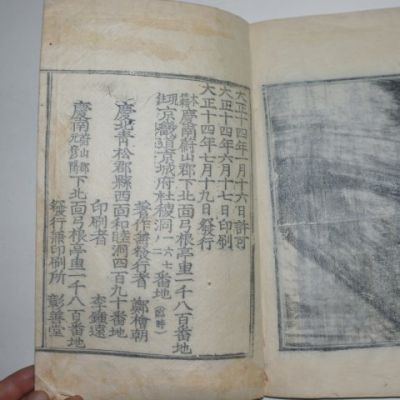 大正十四年一月十六日許可
大正十四年六月十七日印刷
大正十四年七月十九日發行
本籍慶南蔚山郡下北面弓根亭里一千八百番地
現住京畿道京城府社稷洞一六七番地(臨時)
著作兼發行者 鄭檜朝
慶北靑松郡縣西面和睦洞四百九十番地
印刷者 李鍾遠
慶南蔚山郡元彦陽下北面弓根亭里一千八百番地
發行兼印刷所 彰善堂